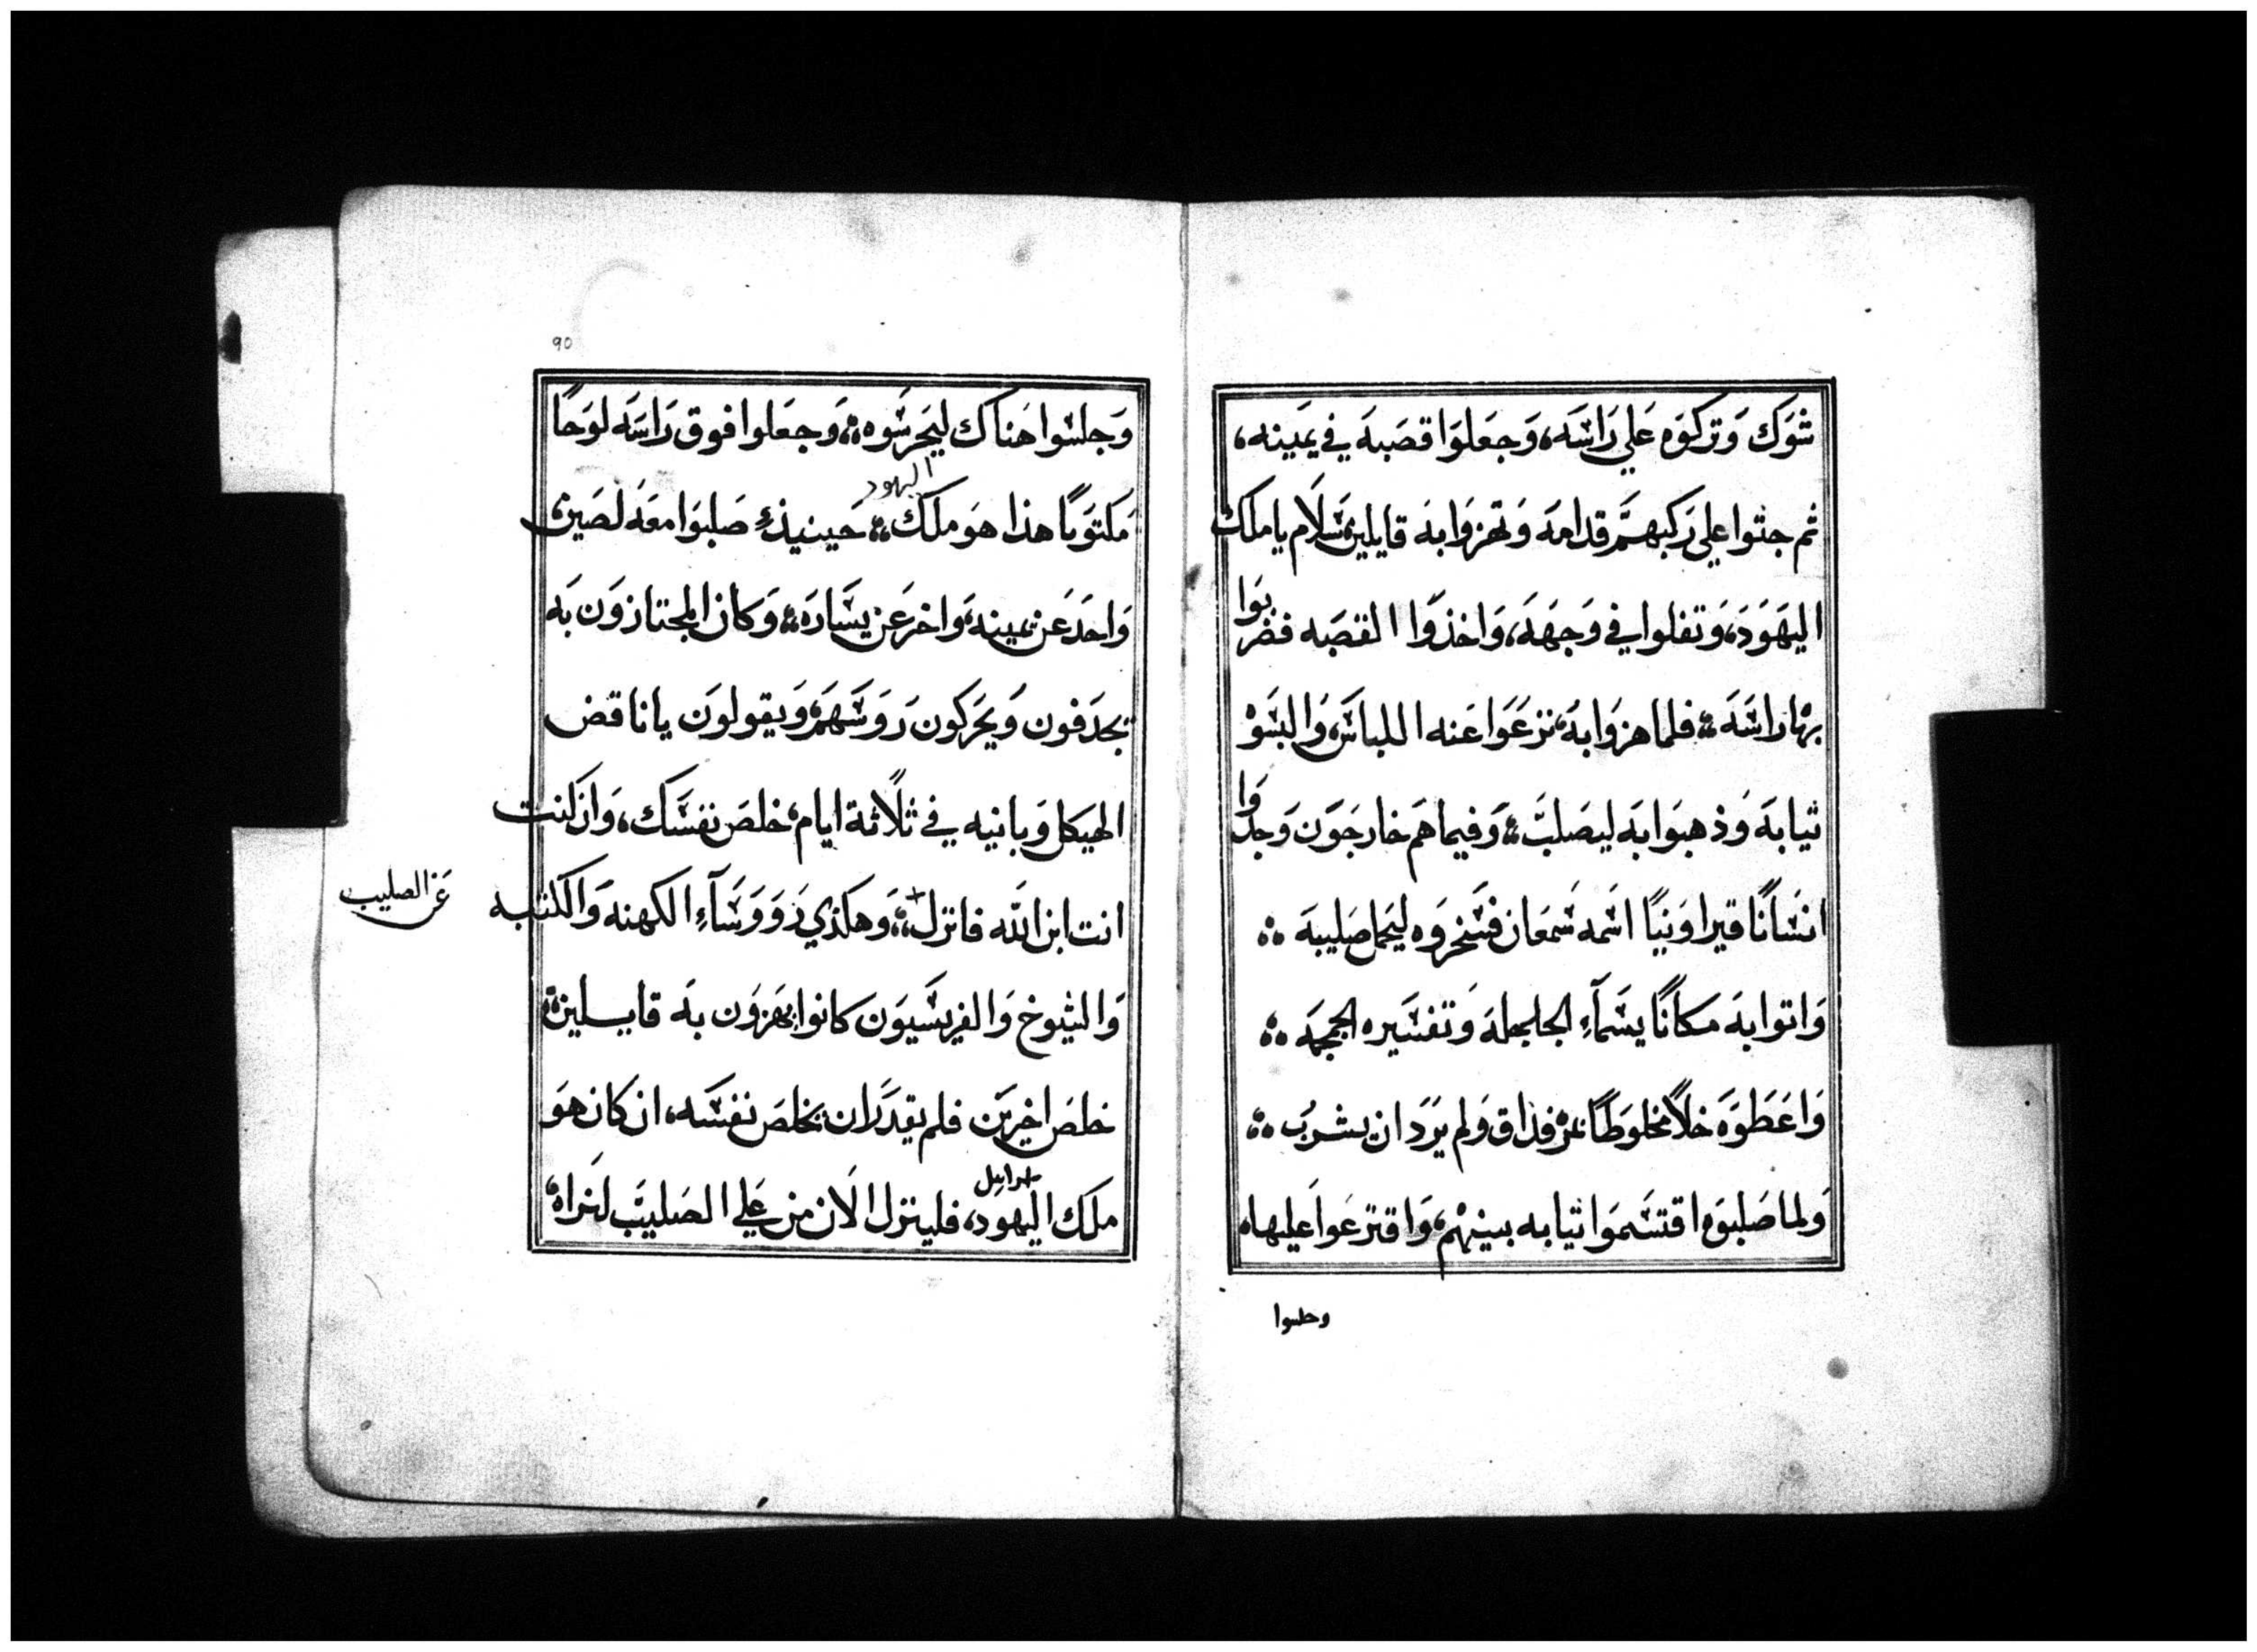 شوك وتركوه علي راسه، وجعلوا قصبه في يمينه،
ثم جثوا علي ركبهم قدامه وتهزوا به قايلين سلام يا ملك
اليهود، وتفلوا في وجهه، واخذوا القصبه فضربوا
بها راسه؛ فلما هزوا به، نزعوا عنه اللباس، والبسوْ
ثيابه وذهبوا به ليصلب؛ وفيما هم خارجون وجدوا
انسانا قيراونيا اسمه سمعان فسخروه ليحمل صليبه ؞
واتوا به مكانا يسماء الجلجلة وتفسيره الجمجمه ؞
واعطوه خلا مخلوطا بمر فذاق ولم يرد ان يشرب ؞
ولما صلبوه اقتسموا ثيابه بينهم، واقترعوا عليها،
وجلسوا
90
وجلسوا هناك ليحرسوه؞ وجعلوا فوق راسه لوحا
اليهود
مكتوبا هذا هو ملك؞ حينيذٍ صلبوا معه لصين،
واحد عن يمينه، واخر عن يساره؞ وكان المجتازون به
يجدفون ويحركون رووسهم، ويقولون يا ناقض
الهيكل وبانيه في ثلاثة ايام، خلص نفسك، وان كنت
انت ابن الله فانزل؞ وهكذي رووساء الكهنه والكتبه
عن الصليب
والشيوخ والفريسيون كانوا يهزون به قايلين،
خلص اخرين فلم يقدر ان يخلص نفسه، ان كان هو
اسراييل
ملك اليهود، فلينزل الان من علي الصليب لنراه،